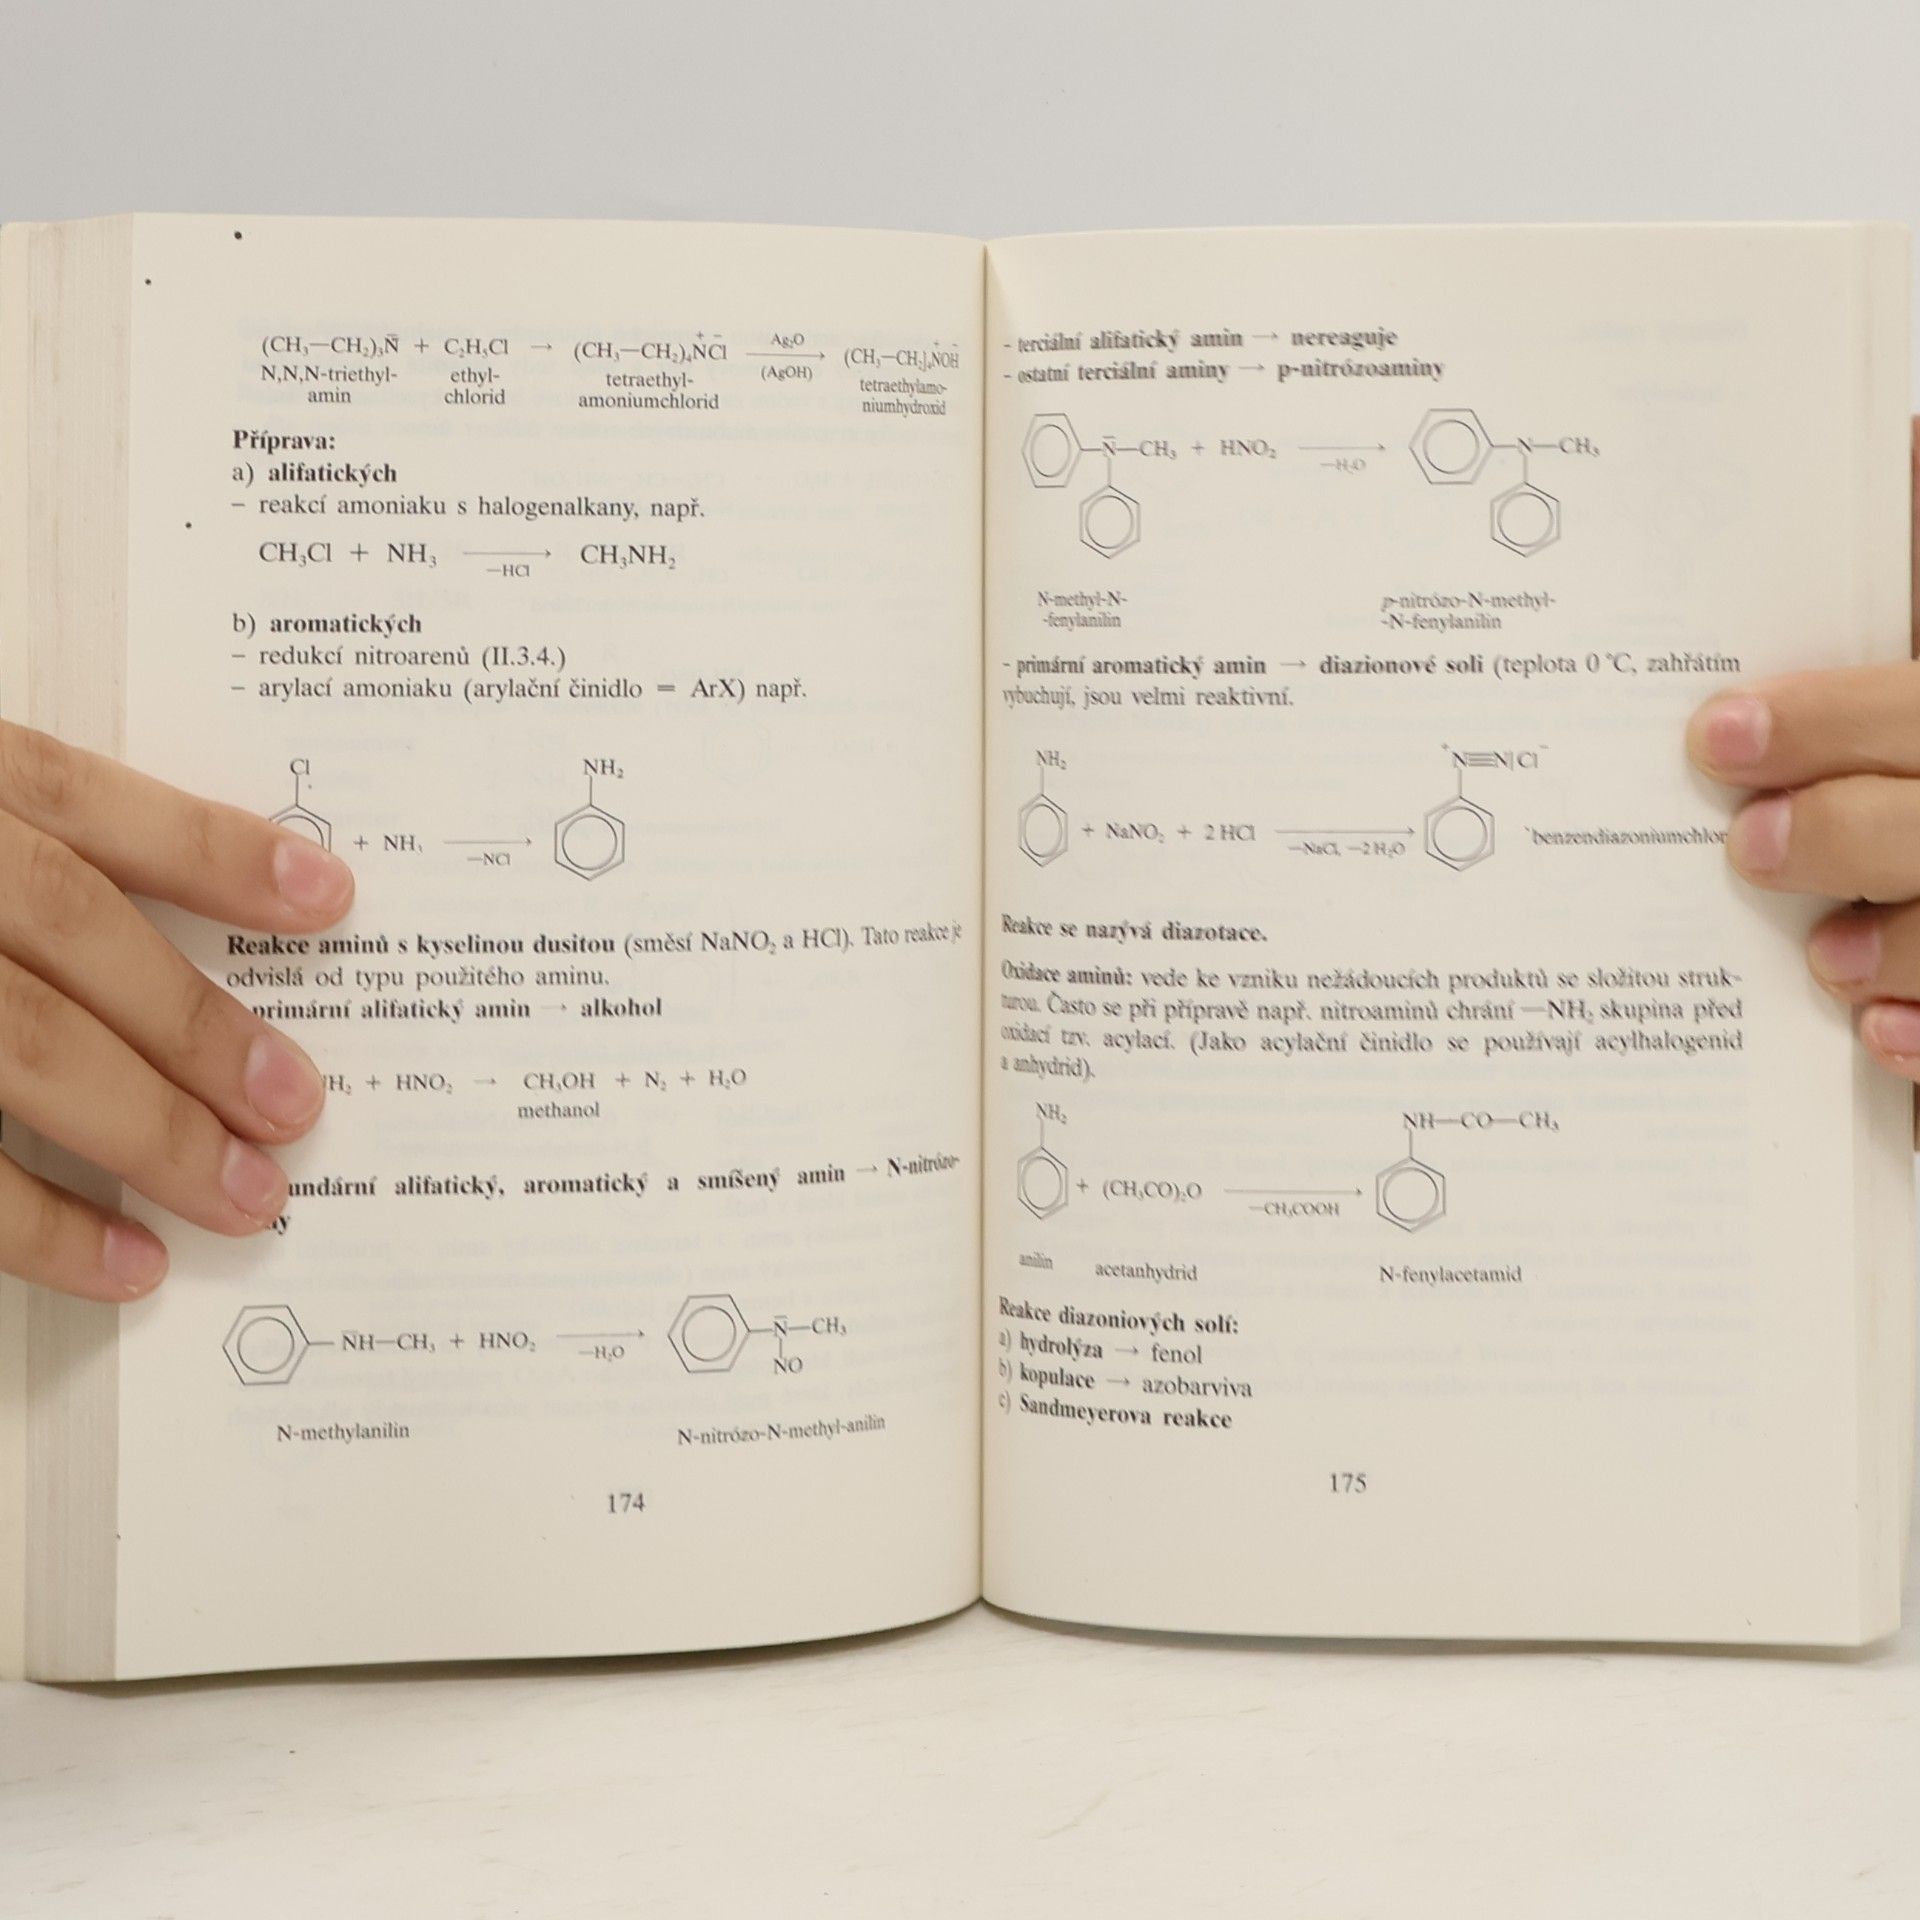 (CH₃—CH₂)₃N̄ + C₂H₅Cl → (CH₃—CH₂)₄N⁺Cl⁻ Ag₂O (AgOH) → (CH₃—CH₂)₄N⁺OH⁻
N,N,N-triethyl- ethyl- tetraethyl- tetraethylamo-
amin chlorid amoniumchlorid niumhydroxid
Příprava:
a) alifatických
– reakcí amoniaku s halogenalkany, např.
CH₃Cl + NH₃ → CH₃NH₂
—HCl
b) aromatických
– redukcí nitroarenů (II.3.4.)
– arylací amoniaku (arylační činidlo = ArX) např.
Cl NH₂
+ NH₃ →
—NCl
Reakce aminů s kyselinou dusitou (směsí NaNO₂ a HCl). Tato reakce je
odvislá od typu použitého aminu.
primární alifatický amin → alkohol
H₂ + HNO₂ → CH₃OH + N₂ + H₂O
methanol
undární alifatický, aromatický a smíšený amin → N-nitrózo-
ny
N̄H—CH₃ + HNO₂ → N̄—CH₃
—H₂O NO
N-methylanilin N-nitrózo-N-methyl-anilin
174
- terciální alifatický amin → nereaguje
- ostatní terciální aminy → p-nitrózoaminy
N̄—CH₃ + HNO₂ → N—CH₃
—H₂O
N-methyl-N- p-nitrózo-N-methyl-
-fenylanilin -N-fenylanilin
- primární aromatický amin → diazionové soli (teplota 0 °C, zahřátím
vybuchují, jsou velmi reaktivní.
NH₂ ⁺N≡N|Cl⁻
+ NaNO₂ + 2 HCl → benzendiazoniumchlor
—NaCl, —2 H₂O
Reakce se nazývá diazotace.
Oxidace aminů: vede ke vzniku nežádoucích produktů se složitou struk-
turou. Často se při přípravě např. nitroaminů chrání —NH₂ skupina před
oxidací tzv. acylací. (Jako acylační činidlo se používají acylhalogenid
a anhydrid).
NH₂ NH—CO—CH₃
+ (CH₃CO)₂O →
—CH₃COOH
anilin acetanhydrid N-fenylacetamid
Reakce diazoniových solí:
a) hydrolýza → fenol
b) kopulace → azobarviva
c) Sandmeyerova reakce
175